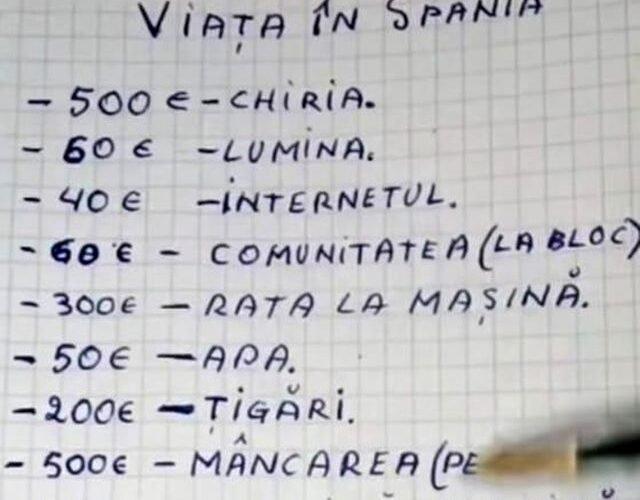 VIAȚA ÎN SPANIA
- 500 € - CHIRIA.
- 60 € - LUMINA.
- 40 € - INTERNETUL.
- 60 € - COMUNITATEA (LA BLOC)
- 300€ - RATA LA MAȘINĂ.
- 50€ - APA.
- 200€ - ȚIGĂRI.
- 500€ - MÂNCAREA (PE